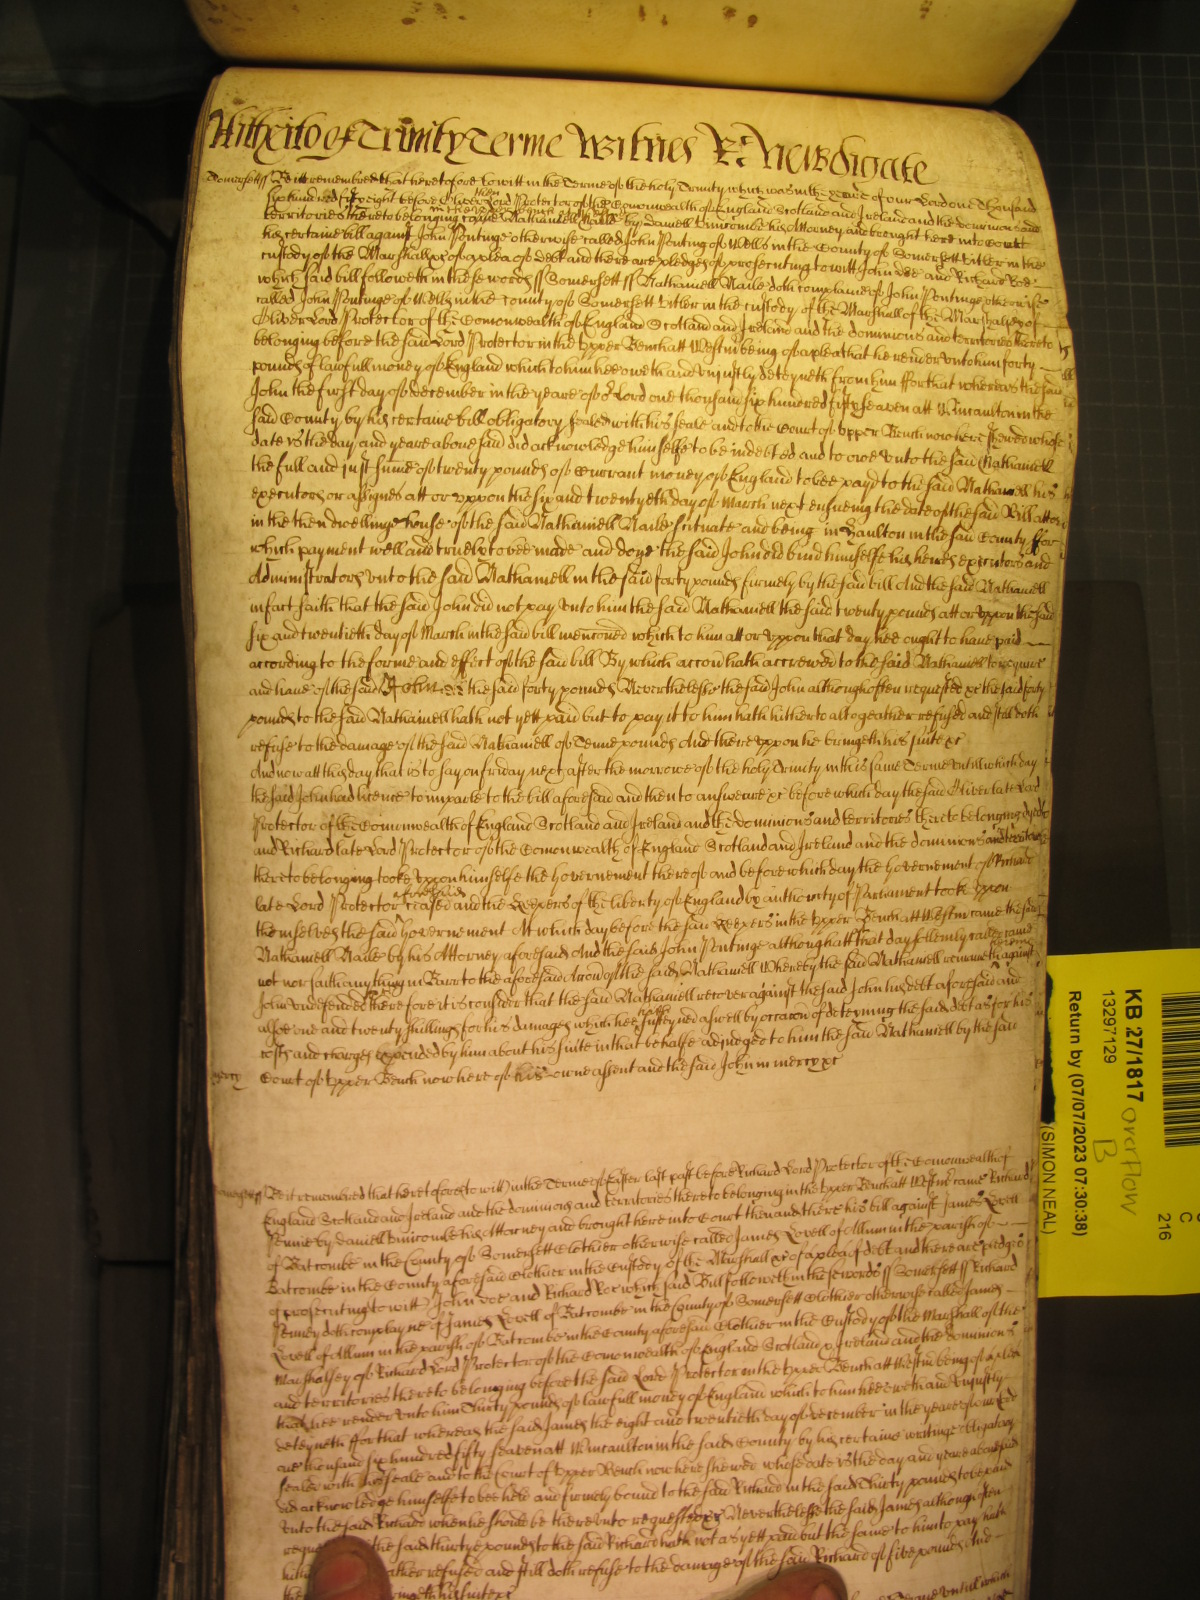 Hitherto of Trinity Terme Witnes R: Newdigate
Somersett ss Be itt remembred that heretofore to witt in the Terme of the holy Trinity which was in the yeare of our Lord one thousand
six hundred fifty eight before Oliver then Lord Protector of the Comonwealth of England Scotland and Ireland and the dominions and
territories thereto belonging came Nathaniell Naile by Daniell Bunicombe his Attorney and brought here into Court
his certaine bill against John Ponting otherwise called John Ponting of Wells in the County of Somersett in the
custody of the Marshall xc of a plea of debt and there are pledges of prosecuting to witt John Doe and Richard Roe
which said bill followeth in these words ss Somersett ss Nathaniell Naile doth complaine of John Pontinge otherwise
called John Pontinge of Wells in the County of Somersett in the custody of the Marshall of the Marshalsey of
Oliver Lord Protector of the Comonwealth of England Scotland and Ireland and the dominions and territories thereto
belonging before the said Lord Protector in the Upper Bench att Westm being of a plea that he render unto him forty
pounds of lawfull money of England which to him hee oweth and uniustly deteyneth from him ffor that whereas the said
John the first day of December in the yeare of or Lord one thousand six hundred fifty seaven att Kincaulton in the
said County by his certaine bill obligatory sealed with his seale and to the Court of Upper Bench now here shewed whose
date is the day and yeare abovesaid did acknowledge himselfe to be indebted and to owe unto the said Nathaniell
the full and just sume of twenty pounds of currant money of England to bee payd to the said Nathaniell his
executors or assignes att or uppon the six and twentyeth day of March next ensueing the date of the said Bill att or
in the then dwellinge house of the said Nathaniell Naile scituate and being in in the said County ffor
which payment well and truely to bee made and done the said John did bind himselfe his heires executors and
Administrators unto the said Nathaniell in the said forty pounds firmely by the said bill And the said Nathaniell
in fact saith that the said John did not pay unto him the said Nathaniell the said twenty pounds att or uppon the said
six and twentieth day of March in the said bill menconed which to him att or uppon that day hee ought to have paid
according to the forme and effect of the said bill By which accon hath accrewed to the said Nathaniell to require
and have of the said John the said forty pounds Neverthelesse the said John although often requested xc the said forty
pounds to the said Nathaniell hath not yett paid but to pay it to him hath hitherto altogeather refused and still doth
refuse to the damage of the said Nathaniell of Tenne pounds And thereuppon he bringeth his suite xc
And now att this day that is to say on friday next after the morrowe of the holy Trinity in this same Terme untill which day
the said John had licence to imparle to the bill aforesaid and then to answeare xc before which day the said Oliver late Lord
Protector of the Comonwealth of England Scotland and Ireland and the dominions and territories thereto belonging dyed
and Richard late Lord Protector of the Comonwealth of England Scotland and Ireland and the dominions and territories
thereto belonging tooke uppon himselfe the Governement thereof and before which day the Governement of Richard
late Lord Protector aforesaid ceased and the Keepers of the liberty of England by authority of Parliament took uppon
themselves the said Governement At which day before the said Keepers in the Upper Bench att Westm came the said
Nathaniell Naile by his Attorney aforesaid And the said John Pontinge although att that day sollemly called came
not nor saith any thing in Barr to the aforesaid Accon of the said Nathaniell Whereby the said Nathaniell remaineth against
John undefended therefore it is considered that the said Nathaniell recover against the said John his debt aforesaid and
alsoe one and twenty shillings for his damages which hee hath susteyned aswell by occasion of deteyning the said debt as for his
costs and charges expended by him about his suite in that behalfe adjudged to him the said Nathaniell by the said
mercy Court of Upper Bench now here of his owne assent and the said John in mercy xc
Somersett ss Be it remembred that heretofore to witt in the Terme of Easter last past before Richard Lord Protector of the Comonwealth of
England Scotland and Ireland and the dominions and territories thereto belonging in the Upper Bench att Westm came Richard
by Daniell Bunicombe his Attorney and brought here into Court then and there his bill against James Lovell
of Batcombe in the County of Somersett Clothier otherwise called James Lovell of Allum in the parish of
Batcombe in the County aforesaid Clothier in the Custody of the Marshall xc of a plea of debt and there are pledges
of prosecuting to witt John Doe and Richard Roe which said Bill followeth in these words ss Somersett ss Richard
doth complayne of James Lovell of Batcombe in the County of Somersett Clothier otherwise called James
Lovell of Allum in the parish of Batcombe in the County aforesaid Clothier in the Custody of the Marshall of the
Marshalsey of Richard Lord Protector of the Comonwealth of England Scotland & Ireland and the dominions
and territories thereto belonging before the said Lord Protector in the Upper Bench att Westm being of a plea
that hee render unto him Thirty pounds of lawfull money of England which to him hee oweth and uniustly
deteyneth ffor that whereas the said James the eight and twentieth day of December in the yeare of our Lord
one thousand six hundred fifty seaven att Kincaulton in the said County by his certaine writinge obligatory
sealed with his seale and to the Court of Upper Bench now here shewed whose date is the day and yeare abovesaid
did acknowledge himselfe to bee held and firmely bound to the said Richard in the said Thirty pounds to be paid
unto the said Richard when he should be thereunto requested xc Neverthelesse the said James although often
the said thirty pounds to the said Richard hath not as yett paid but the same to him to pay hath
refused and still doth refuse to the damage of the said Richard of five pounds And
his suite xc
untill which
KB 27/1817
13297129
Return by (07/07/2023 07:30:38)
(SIMON NEAL)
overflow
B
C
216